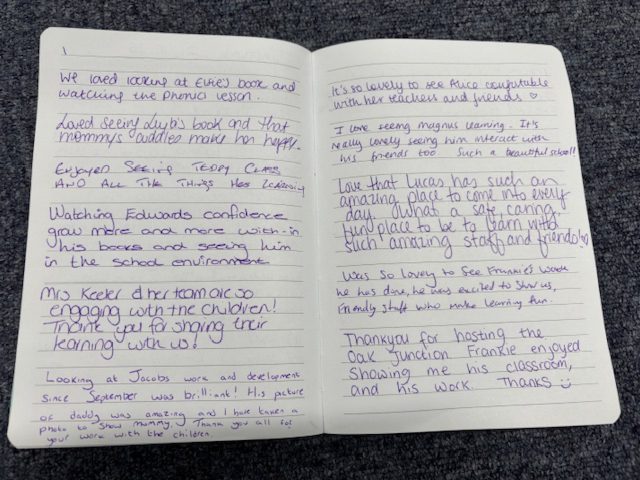 We loved looking at Elfie's book and
watching the phonics lesson.
Loved seeing Luyb's book and that
mommy's cuddles make her happy.
Enjoyed Seeing Teddy Class
And All The Things Hes Learning
Watching Edwards confidence
grow more and more with-in
his books and seeing him
in the school environment
Mrs Keeler & her team are so
engaging with the children!
Thank you for sharing their
learning with us!
Looking at Jacobs work and development
since September was brilliant! His picture
of daddy was amazing and I have taken a
photo to show mummy. Thank you all for
your work with the children.
It's so lovely to see Alice comfortable
with her teachers and friends ♡
I love seeing magnus learning. It's
really lovely seeing him interact with
his friends too. Such a beautiful school!
Love that Lucas has such an
amazing place to come into every
day. What a safe, caring,
fun place to be to learn with
such amazing staff and friends! ♡
Was so lovely to See Frankie's work
he has done, he was excited to show us,
Friendly staff who make learning fun.
Thankyou for hosting the
Oak Junction Frankie enjoyed
Showing me his classroom,
and his work. Thanks ☺